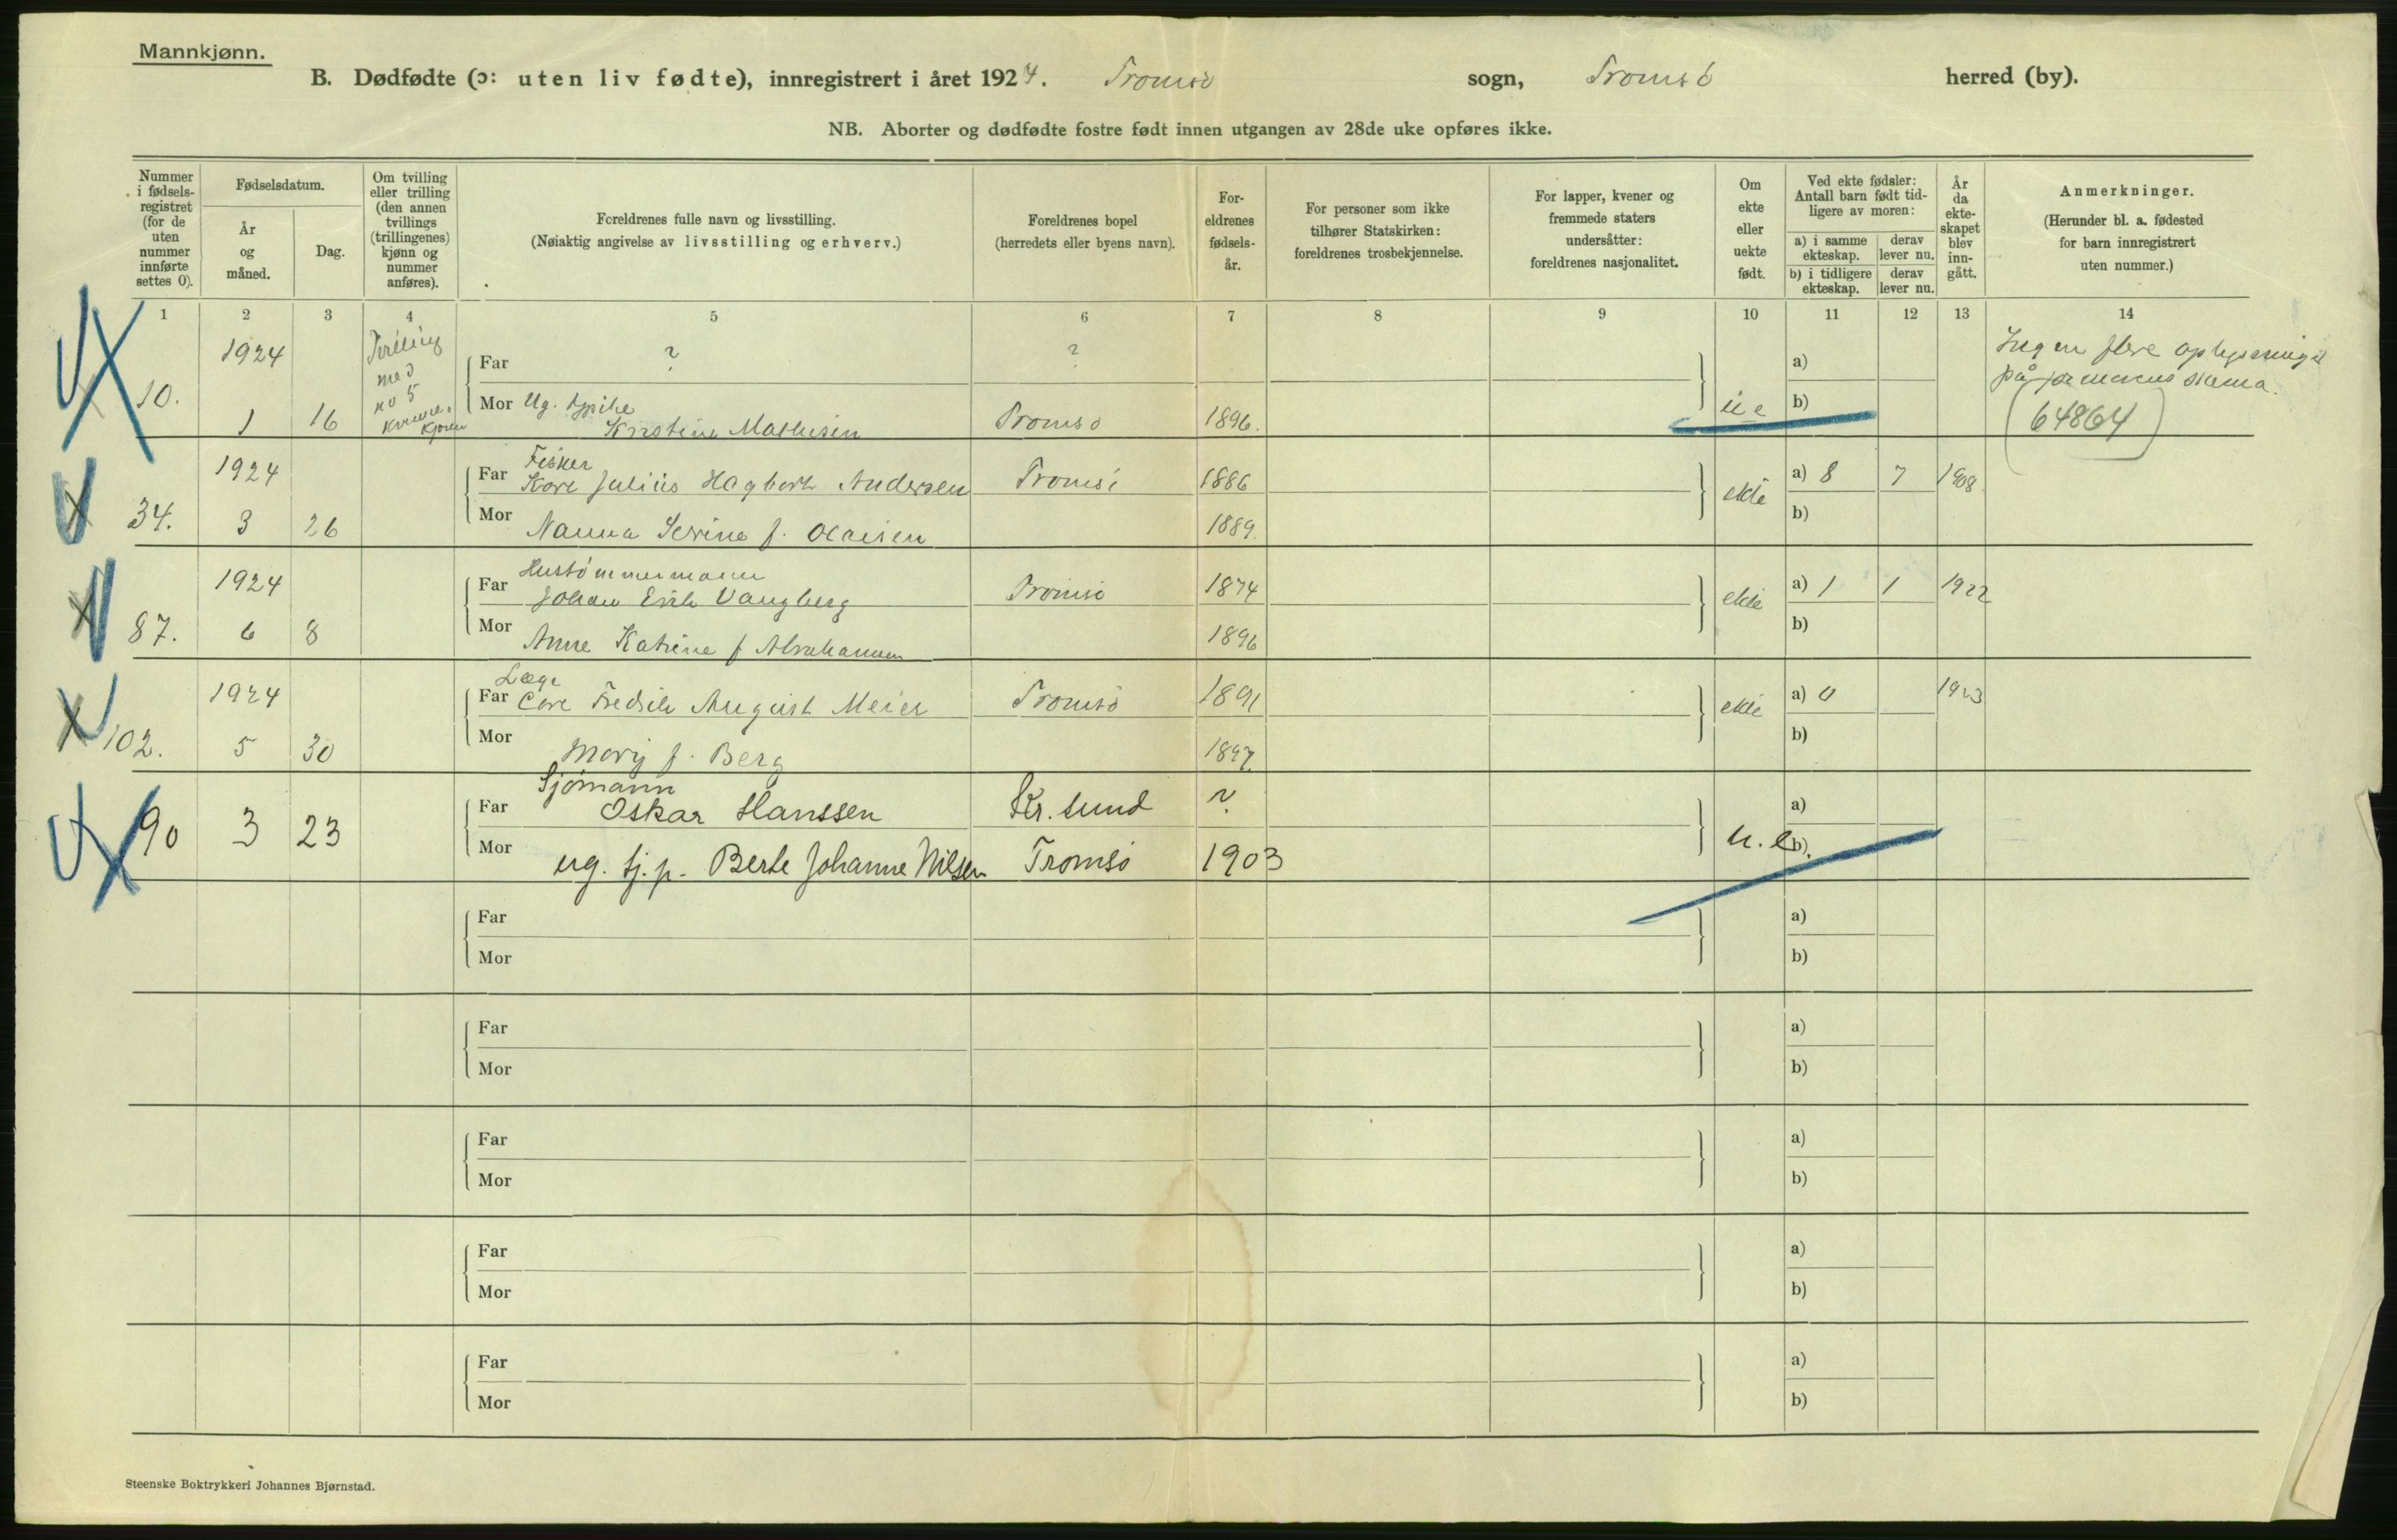 Mannkjønn.
B. Dødfødte (ɔ: uten liv fødte), innregistrert i året 1924. Tromsø sogn, Tromsø herred (by).
NB. Aborter og dødfødte fostre født innen utgangen av 28de uke opføres ikke.
Nummer
i fødsels-
registret
(for de
uten
nummer
innførte
settes 0).
Fødselsdatum.
År
og
måned.
Dag.
Om tvilling
eller trilling
(den annen
tvillings
(trillingenes)
kjønn og
nummer
anføres).
Foreldrenes fulle navn og livsstilling.
(Nøiaktig angivelse av livsstilling og erhverv.)
Foreldrenes bopel
(herredets eller byens navn).
For-
eldrenes
fødsels-
år.
For personer som ikke
tilhører Statskirken:
foreldrenes trosbekjennelse.
For lapper, kvener og
fremmede staters
undersåtter:
foreldrenes nasjonalitet.
Om
ekte
eller
uekte
født.
Ved ekte fødsler:
Antall barn født tid-
ligere av moren:
a) i samme
ekteskap.
derav
lever nu.
b) i tidligere
ekteskap.
derav
lever nu.
År
da
ekte-
skapet
blev
inn-
gått.
Anmerkninger.
(Herunder bl. a. fødested
for barn innregistrert
uten nummer.)
1 2 3 4 5 6 7 8 9 10 11 12 13 14
10. 1924 1 16
Tvilling
med
no 5
kvinne-
kjønn
Far ? ?
Mor Ug. Kristine Mathisen Tromsø 1896. u e
a)
b)
Ingen flere oplysninger
på skema.
(64864)
34. 1924 3 26
Far Fisker
Karl Julius Hagbart Andersen Tromsø 1886
Mor Nanna Serine f. Olaisen 1889.
ekte a) 8 7 1908
b)
87. 1924 6 8
Far Hustømmermann
Johan Erik Vangberg Tromsø 1874
Mor Anne Katrine f Abrahamsen 1896
ekte a) 1 1 1922
b)
102. 1924 5 30
Læge
Far Carl Fredrik August Meier Tromsø 1891
Mor Mary f. Berg 1897.
ekte a) 0 1923
b)
90 3 23
Sjømann
Far Oskar Hanssen Kr. sund ?
Mor ug. tj. p. Berte Johanne Nilsen Tromsø 1903
u. e.
a)
b)
Far a)
Mor b)
Far a)
Mor b)
Far a)
Mor b)
Far a)
Mor b)
Far a)
Mor b)
Steenske Boktrykkeri Johannes Bjørnstad.